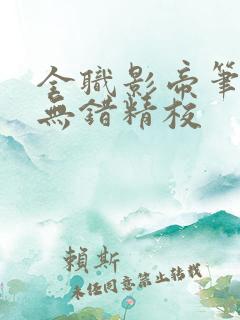 全職影帝筆
無錯精校
賴斯
未經同意禁止轉載